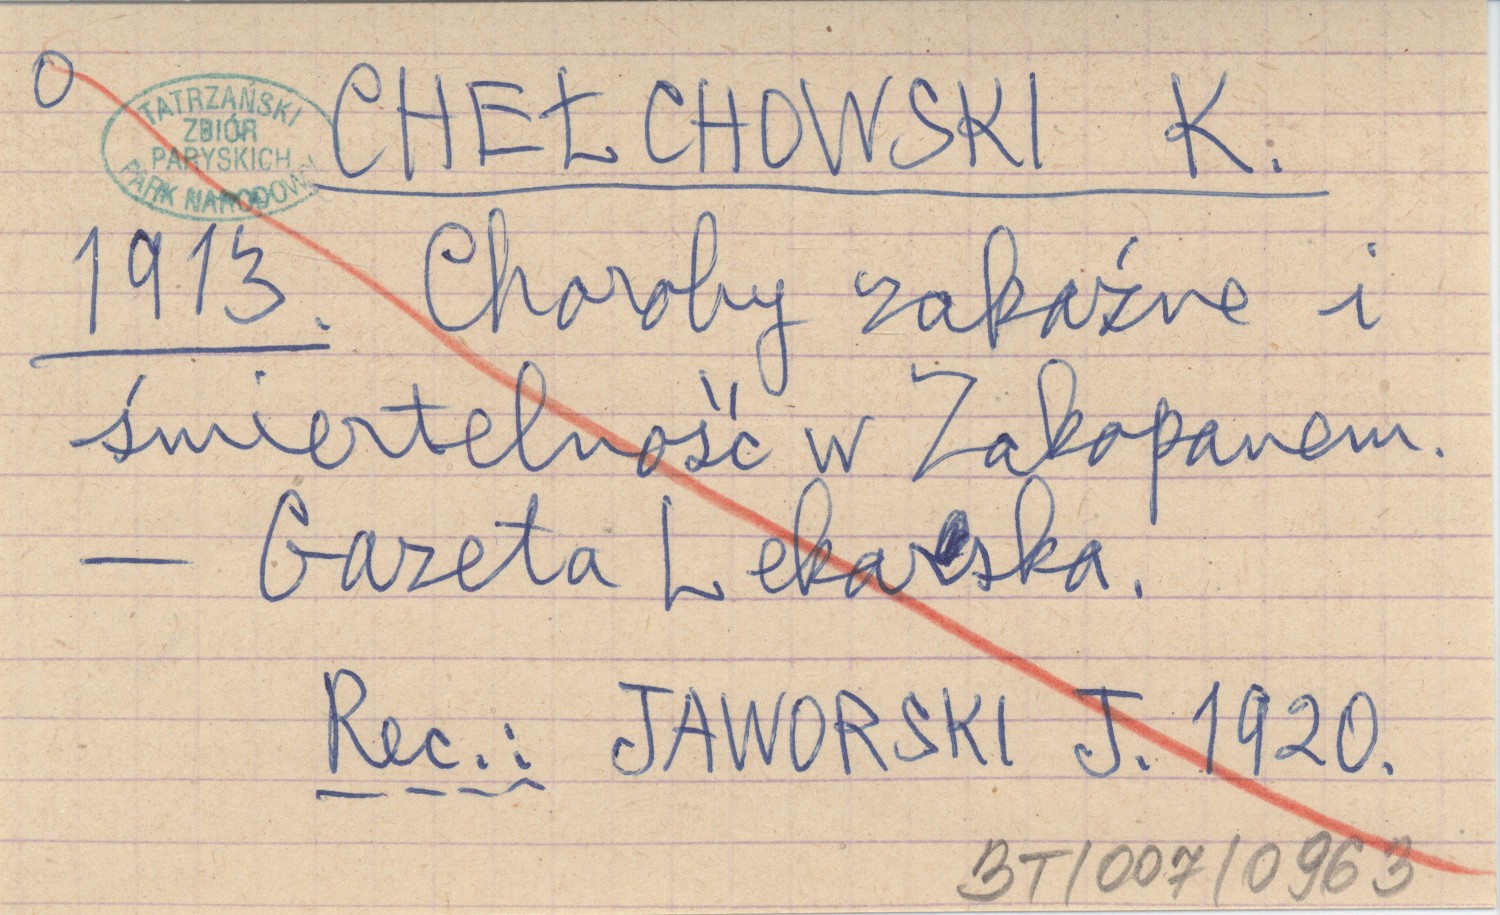 O
TATRZAŃSKI
ZBIÓR
PARYSKICH
PARK NARODOWY
CHEŁCHOWSKI K.
1913. Choroby zakaźne i
śmiertelność w Zakopanem.
— Gazeta Lekarska.
Rec.: JAWORSKI J. 1920.
BT/007/0963